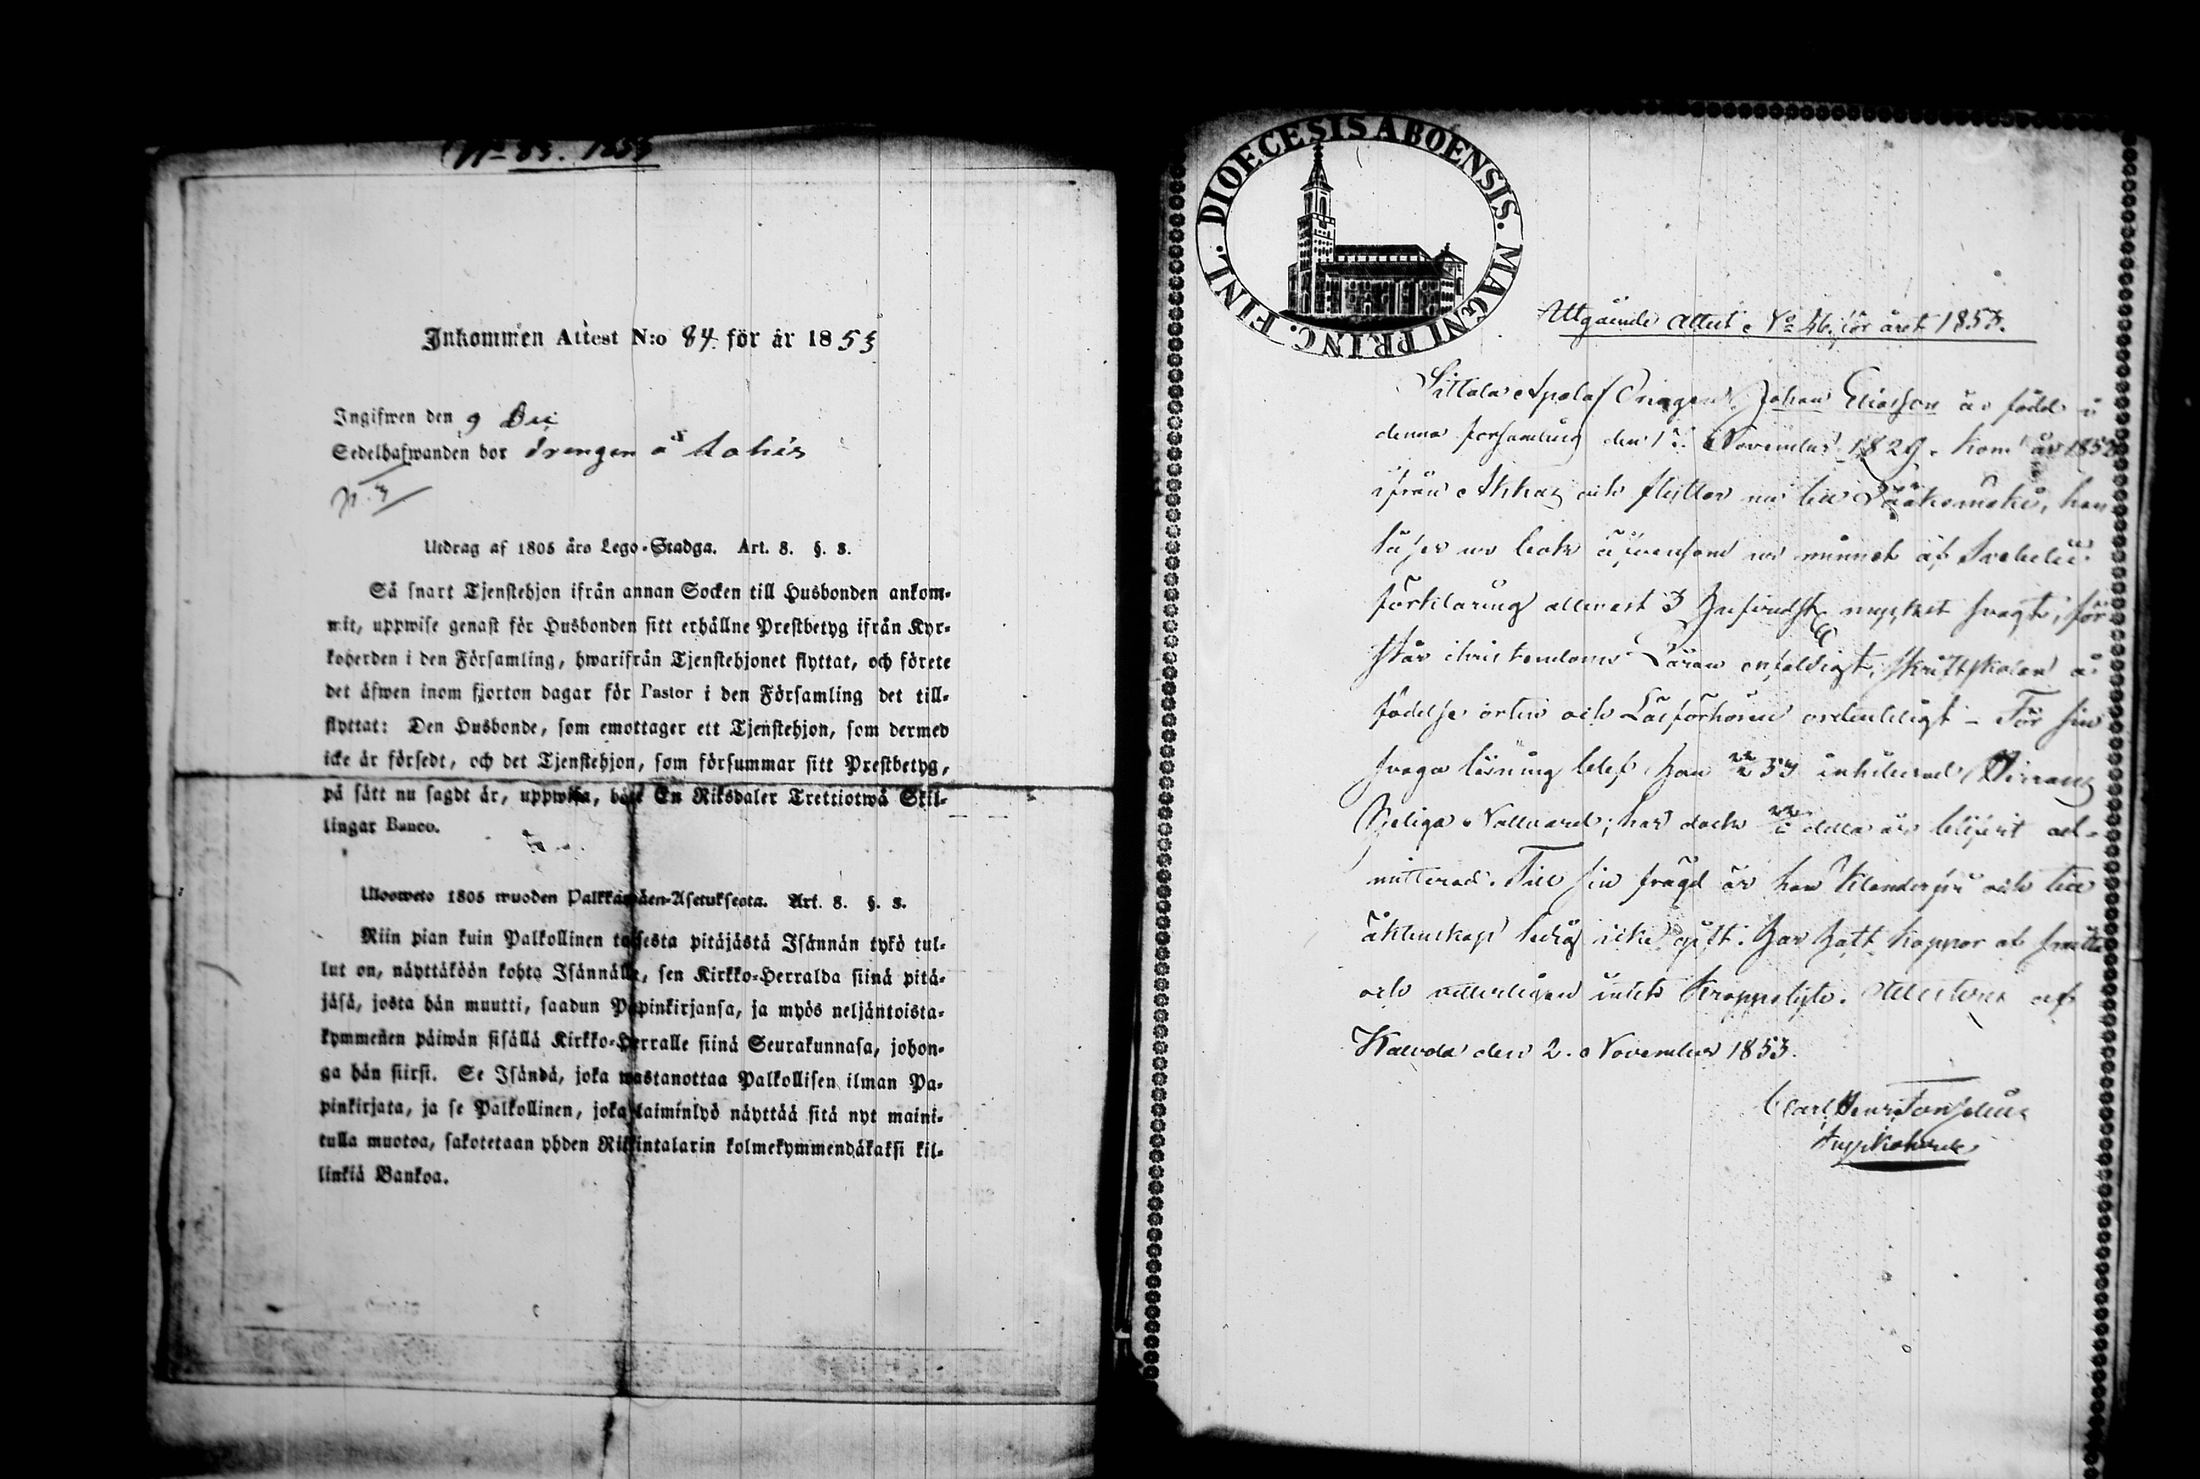 No 83. 1853
Inkommen Attest N:o 84. för år 1853
Ingifwen den 9 Dec
Sedelhafwanden bor drengen å Lahis
p. 3
Utdrag af 1805 års Lego-Stadga. Art. 8. §. 8.
Så snart Tjenstehjon ifrån annan Socken till Husbonden ankom-
mit, uppwise genast för Husbonden sitt erhållne Prestbetyg ifrån Kyr-
koherden i den Församling, hwarifrån Tjenstehjonet flyttat, och förete
det äfwen inom fjorton dagar för Pastor i den Församling det till-
flyttat: Den Husbonde, som emottager ett Tjenstehjon, som dermed
icke är försedt, och det Tjenstehjon, som försummar sitt Prestbetyg,
på sätt nu sagdt är, uppwisa, böte En Riksdaler Trettiotwå Skil-
lingar Banco.
Ulosweto 1805 wuoden Palkkawäen-Asetuksesta. Art. 8. §. 8.
Niin pian kuin Palkollinen toisesta pitäjästä Isännän tykö tul-
lut on, näyttäköön kohta Isännälle, sen Kirkko-Herralda siinä pitä-
jäsä, josta hän muutti, saadun Papinkirjansa, ja myös neljäntoista-
kymmenen päiwän sisällä Kirkko-Herralle siinä Seurakunnasa, johon-
ga hän siirsi. Se Isändä, joka wastanottaa Palkollisen ilman Pa-
pinkirjata, ja se Palkollinen, joka laiminlyö näyttää sitä nyt maini-
tulla muotoa, sakotetaan yhden Riksintalarin kolmekymmendäkaksi kil-
linkiä Bankoa.
DIOECESIS ABOENSIS. MAGNI PRINC. FINL.
Utgående Attest No 46. för året 1853.
Drägen Johan Eliasson är född i
denna församling den November 1829. kom år 1852
ifrån Akkas och flyttar nu till Lääkomäki, han
läser ur bok äfvensom ur minnet af
förklaring allenast mycket svagt; för
står christendoms Läran enfaldigt, skriftskolan å
födelse orten och Läsförhören ordentligt - För sin
svaga läsning blef han
Heliga Nattvard; har dock detta år blifvit ad-
mitterad. Till sin frägd är han klanderfri och till
äktenskap ledig icke gift. Har haft koppor
och veterligen intet kroppslyte. Attesteras af
Kalvola den 2. November 1853.
Carl Henr.